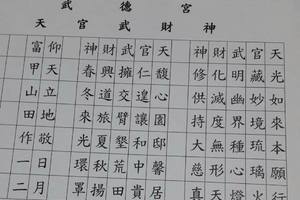 武德宮
天官武財神
天光如來本願行
官藏妙境琉璃火
武明幽界種心燈
財化度無形天
神修供持大慈真
天馥心園邸馨居
官仁遑讓和中貴
武擁交臂墾荒田
財興道旅夏秋揚
神春冬來光環罩
仰天立地敬日月
富甲山田作一二